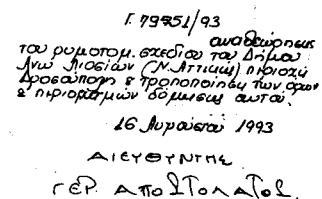 Γ. 79951/93
αναθεώρησης
του ρυμοτομ. σχεδίου του Δήμου
Άνω Λιοσίων (Ν. Αττικής) περιοχή
Δροσούπολη & τροποποίησης των όρων
& περιορισμών δόμησης αυτού.
16 Αυγούστου 1993
ΔΙΕΥΘΥΝΤΗΣ
ΓΕΡ. ΑΠΟΣΤΟΛΑΤΟΣ